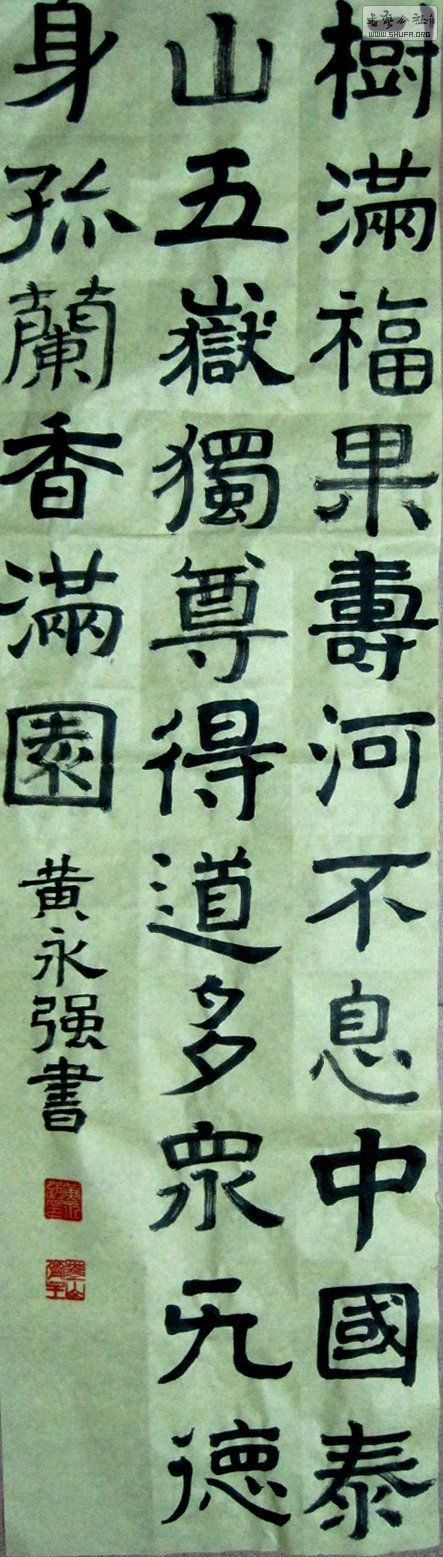 樹滿福果壽河不息中國泰
山五嶽獨尊得道多衆无德
身孤蘭香滿園
黄永强書
WWW.SHUFA.ORG